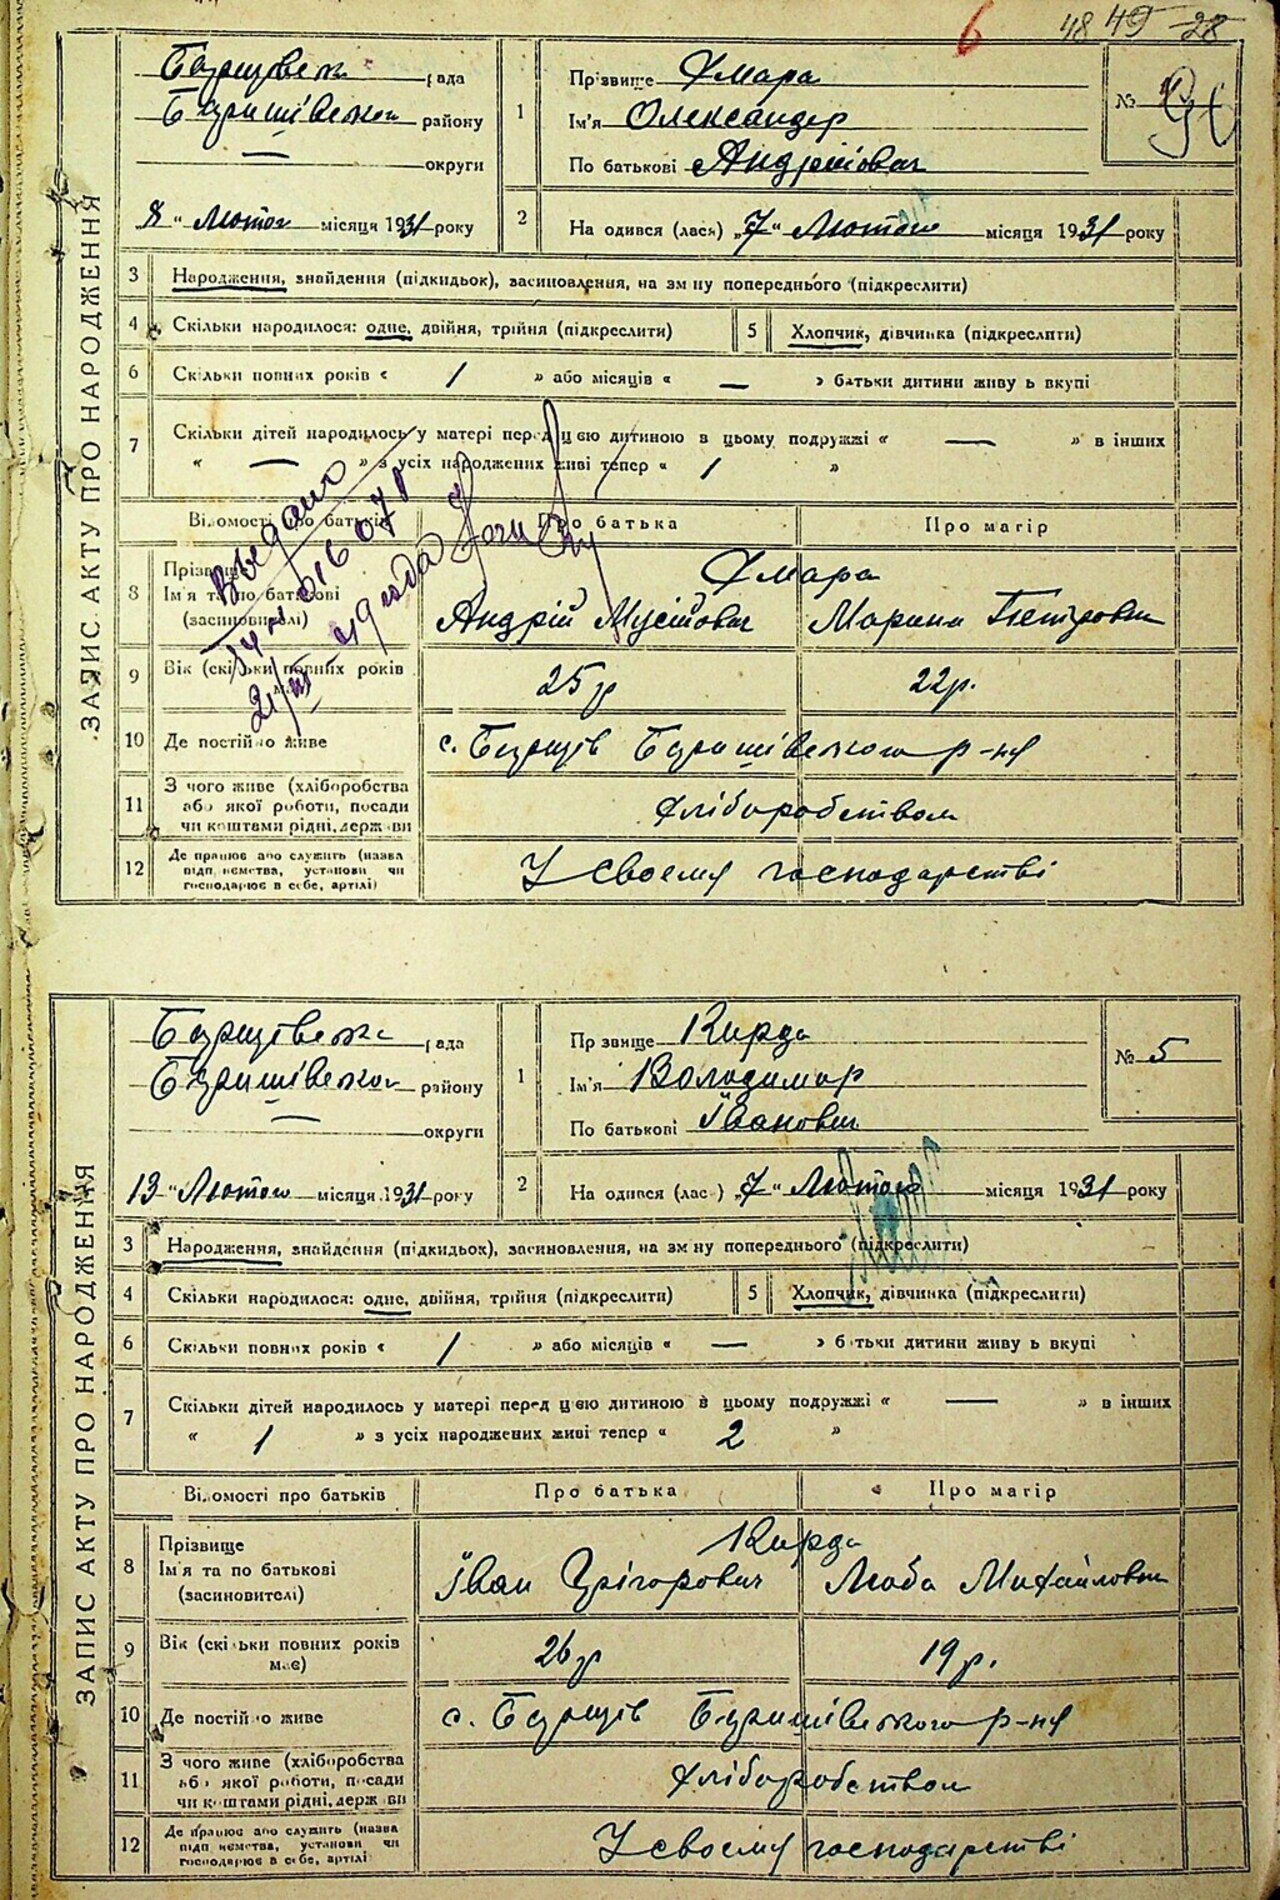 6 48 49 28
Борщівська рада
Баришівського району
— округи
8 " Лютого місяця 1931 року
1 Прізвище Хмара
Ім'я Олександр
По батькові Андрійович
№
2 На одився (лася) „7" Лютого місяця 1931 року
ЗАПИС АКТУ ПРО НАРОДЖЕННЯ
3 Народження, знайдення (підкидьок), засиновлення, на зм ну попереднього (підкреслити)
4 Скільки народилося: одне, двійня, трійня (підкреслити) 5 Хлопчик, дівчинка (підкреслити)
6 Скільки повних років « 1 » або місяців « — » батьки дитини живу ь вкупі
7 Скільки дітей народилось у матері перед цією дитиною в цьому подружжі « — » в інших
« — » з усіх народжених живі тепер « 1 »
Відомості про батьків Про батька Про матір
8 Прізвище
Ім'я та по батькові
(засиновителі)
Хмара
Андрій Мусійович Марина Петровна
9 Вік (скільки повних років
має)
25 р 22 р.
10 Де постійно живе с. Борщів Баришівського р-ну
11 З чого живе (хліборобства
або якої роботи, посади
чи коштами рідні, держави
Хліборобством
12 Де працює або служить (назва
підп иємства, установи чи
господарює в себе, артілі)
У своему господарстві
016078
Борщівська рада
Баришівського району
— округи
13 " Лютого місяця 1931 року
1 Пр звище Кирда
Ім'я Володимир
По батькові Іванович
№ 5
2 На одився (лас ) „7" Лютого місяця 1931 року
ЗАПИС АКТУ ПРО НАРОДЖЕННЯ
3 Народження, знайдення (підкидьок), засиновлення, на зм ну попереднього (підкреслити)
4 Скільки народилося: одне, двійня, трійня (підкреслити) 5 Хлопчик, дівчинка (підкреслити)
6 Скільки повних років « 1 » або місяців « — » батьки дитини живу ь вкупі
7 Скільки дітей народилось у матері перед цією дитиною в цьому подружжі « — » в інших
« 1 » з усіх народжених живі тепер « 2 »
Відомості про батьків Про батька Про матір
8 Прізвище
Ім'я та по батькові
(засиновителі)
Кирда
Іван Грігорович Люба Михайловна
9 Вік (скільки повних років
має)
26 р 19 р.
10 Де постійно живе с. Борщів Баришівського р-ну
11 З чого живе (хліборобства
або якої роботи, посади
чи коштами рідні, держави
Хліборобством
12 Де працює або служить (назва
підп иємства, установи чи
господарює в себе, артілі
У своему господарстві